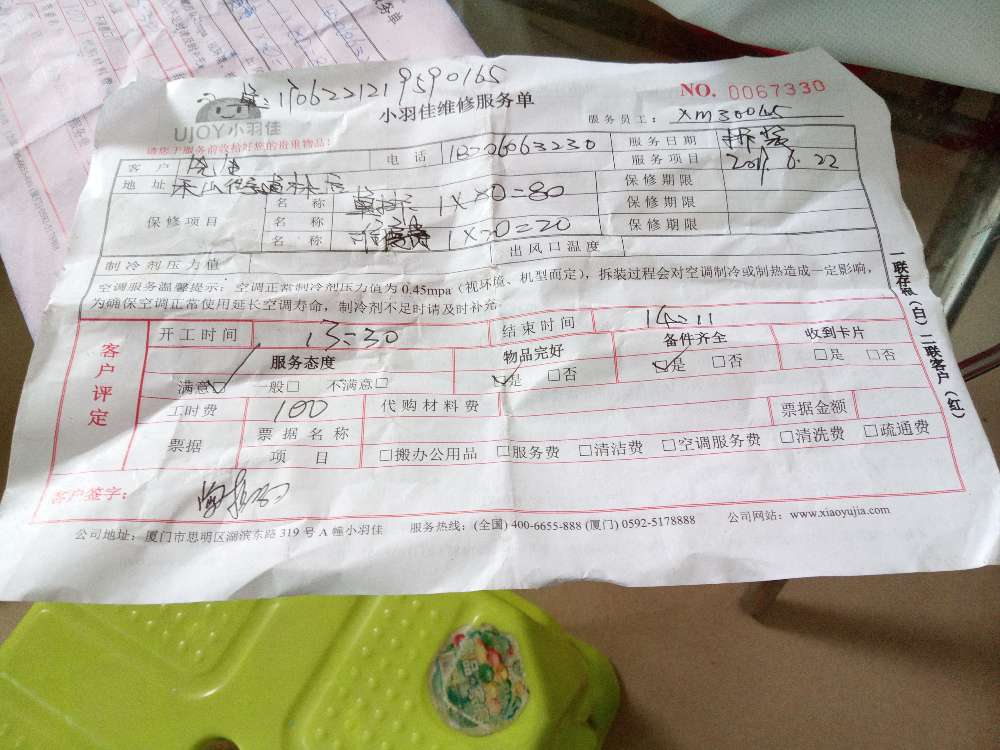 1906221219590165
UJOY小羽佳
小羽佳维修服务单
NO. 0067330
服务员工: XM30065
请您于服务前收拾好您的贵重物品!
客户
电话
服务日期 拆装
地址
服务项目 2019.6.22
保修项目
名称 1X80=80 保修期限
名称 1X20=20 保修期限
名称 保修期限
制冷剂压力值
出风口温度
空调服务温馨提示:空调正常制冷剂压力值为0.45mpa(视环境、机型而定),拆装过程会对空调制冷或制热造成一定影响,
为确保空调正常使用延长空调寿命,制冷剂不足时请及时补充。
一联存根(白)二联客户(红)
客户评定
开工时间 13:30 结束时间
服务态度 物品完好 备件齐全 收到卡片
满意□ 一般□ 不满意□ □是 □否 □是 □否 □是 □否
工时费 100 代购材料费 票据金额
票据 票据名称
项目 □搬办公用品 □服务费 □清洁费 □空调服务费 □清洗费 □疏通费
客户签字:
公司地址:厦门市思明区湖滨东路319号A幢小羽佳 服务热线:(全国)400-6655-888 (厦门)0592-5178888 公司网站:www.xiaoyujia.com